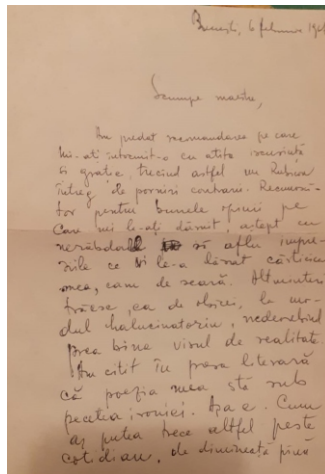 București, 6 februarie 196
Scumpe maestre,
Am predat recomandarea pe care
mi-ați întocmit-o cu atîta
și grație, trecînd astfel un Rubicon
întreg de porniri contrare. Recunoscă-
tor pentru bunele opinii pe
care mi le-ați dăruit, aștept cu
nerăbdare să aflu impre-
siile ce vi le-a lăsat cărticica
mea, cam de seară. Altminteri
trăesc, ca de obicei, la mo-
dul halucinatoriu, nedeosebind
prea bine visul de realitate.
Am citit în presa literară
că poezia mea stă sub
pecetea ironiei. Așa e. Cum
aș putea trece altfel peste
cotidian, de dimineață pînă